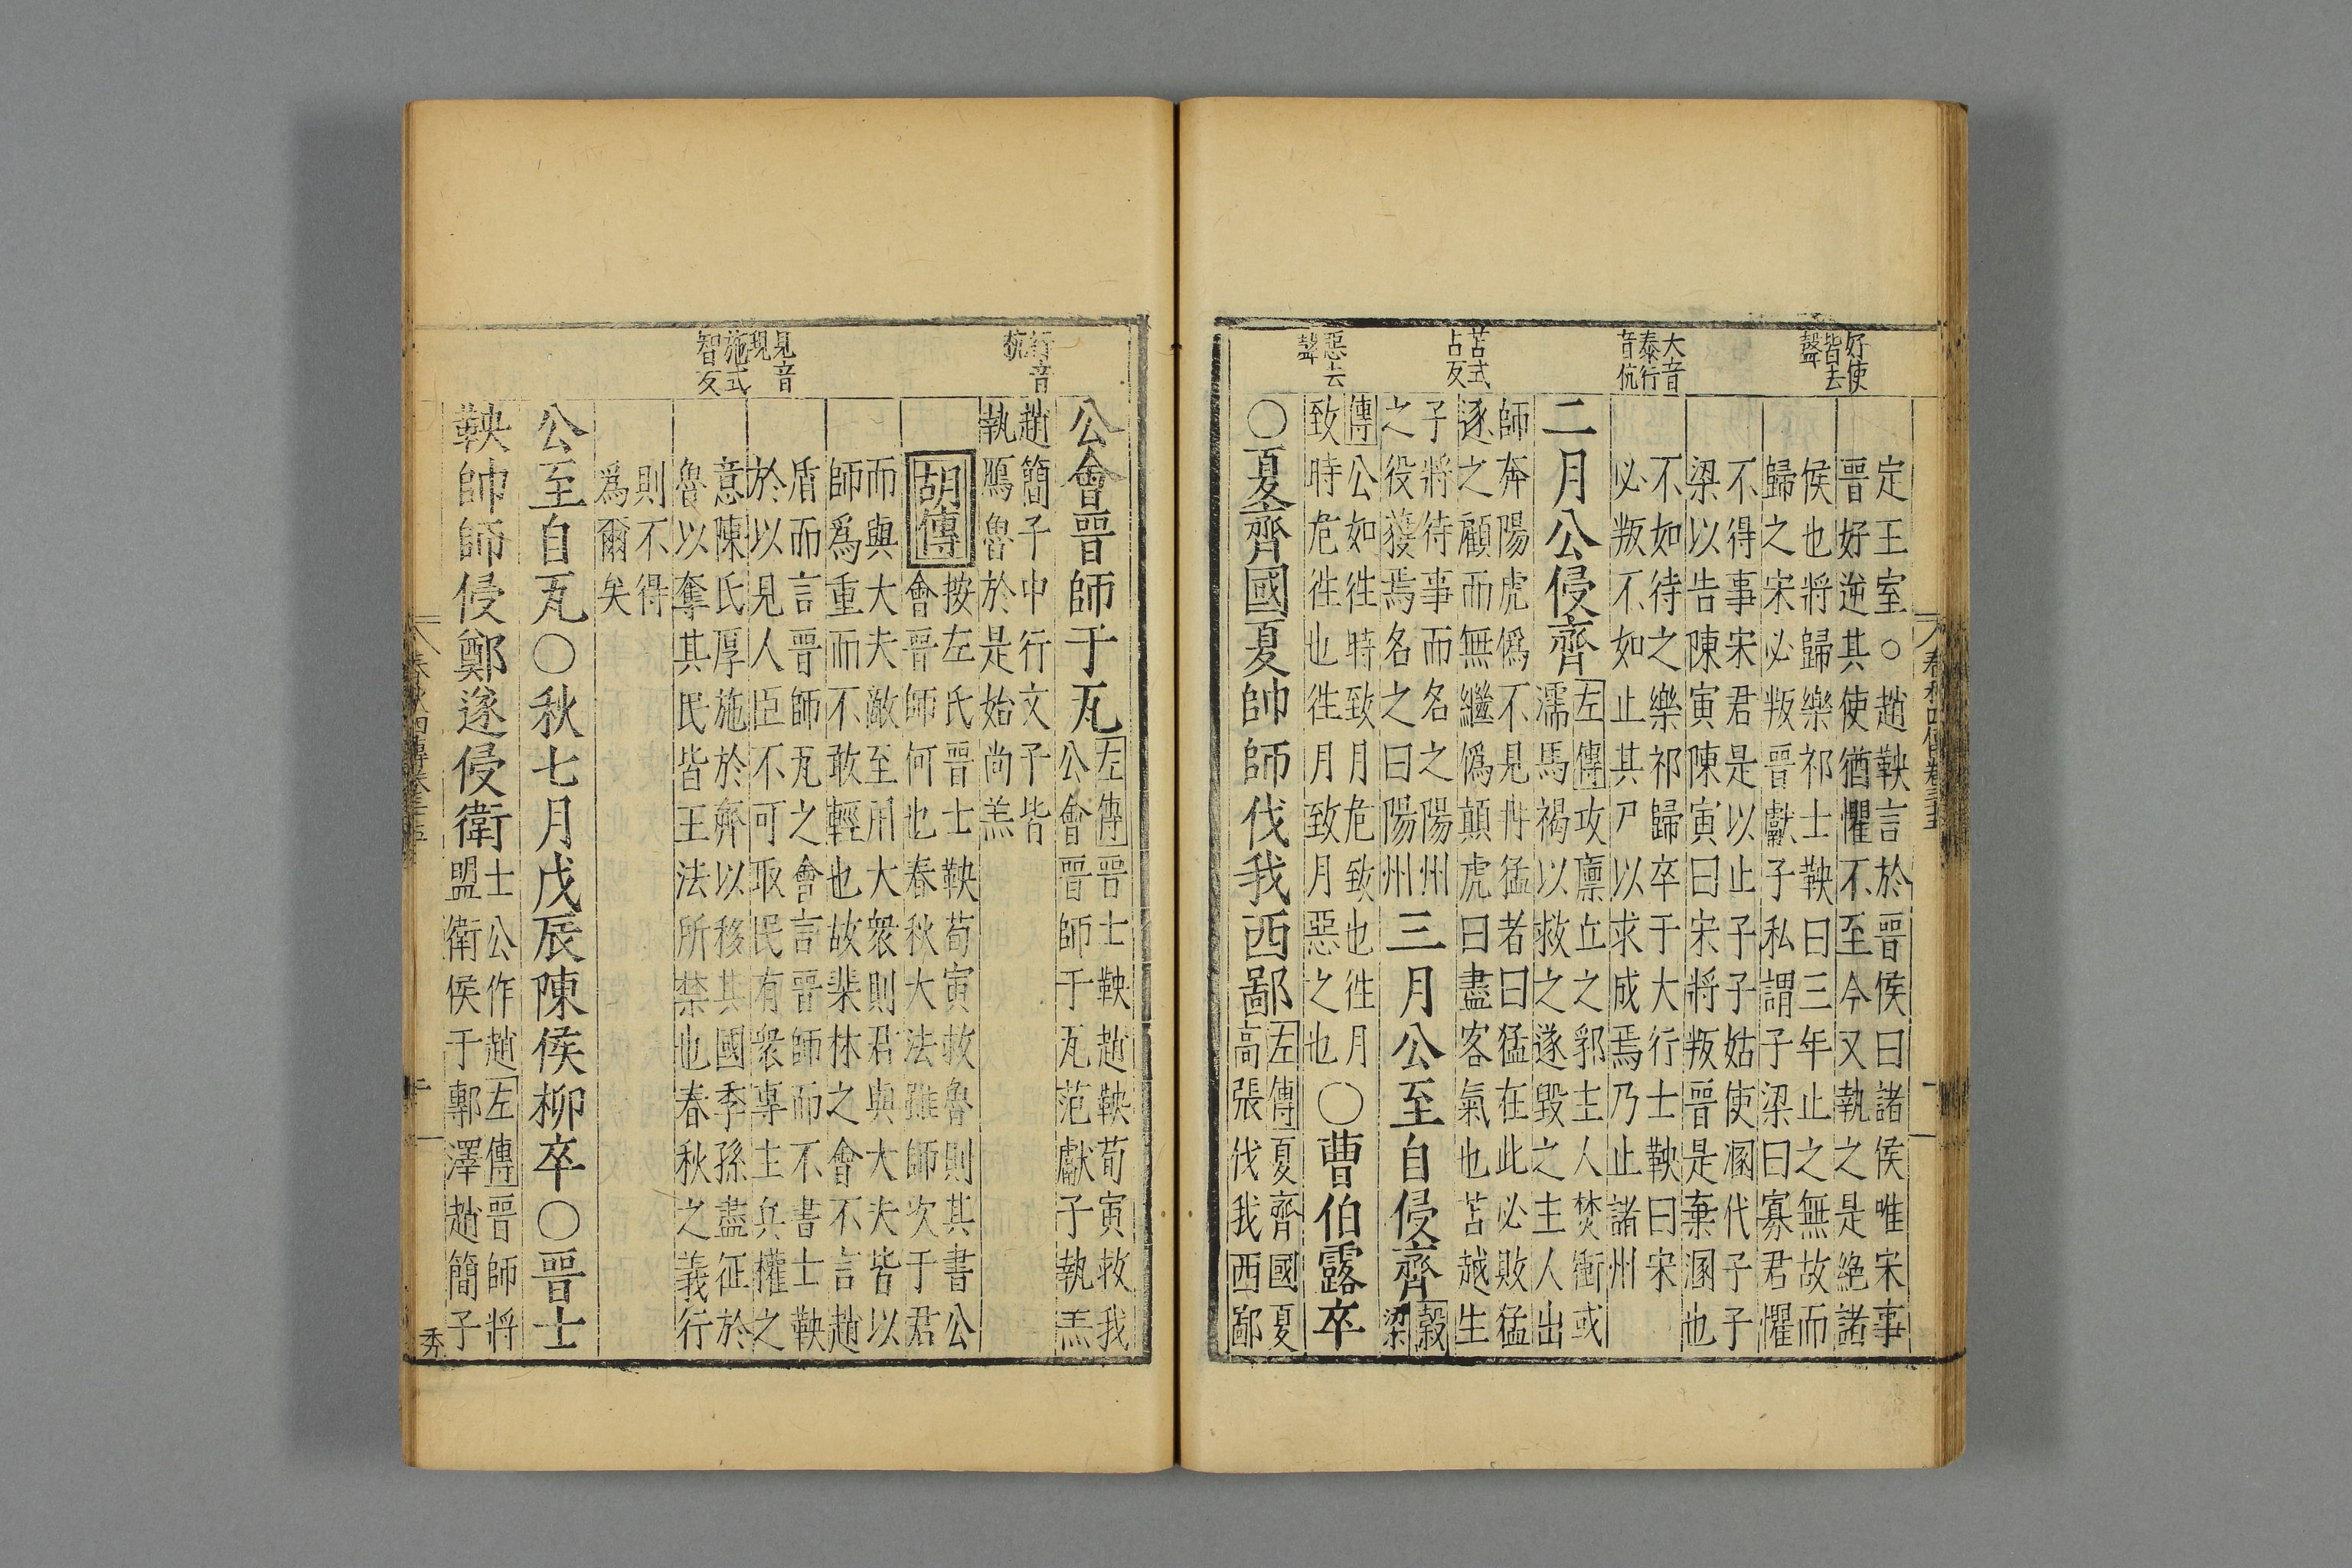 好使
皆去
聲
大音
泰行
音伉
苫式
占反
惡去
聲
定王室○趙鞅言於晉侯曰諸侯唯宋事
晉好逆其使猶懼不至今又執之是絶諸
侯也將歸樂祁士鞅曰三年止之無故而
歸之宋必叛晉獻子私謂子梁曰寡君懼
不得事宋君是以止子子姑使溷代子子
梁以告陳寅陳寅曰宋將叛晉是棄溷也
不如待之樂祁歸卒于大行士鞅曰宋
必叛不如止其尸以求成焉乃止諸州
二月公侵齊
左傳攻廪丘之郛主人焚衝或
濡馬褐以救之遂毀之主人出
師奔陽虎僞不見冉猛者曰猛在此必敗猛
逐之顧而無繼僞顛虎曰盡客氣也苫越生
子將待事而名之陽州
之役獲焉名之曰陽州
三月公至自侵齊
穀
梁
傳公如往時致月危致也往月
致時危往也往月致月惡之也
○曹伯露卒
○夏齊國夏帥師伐我西鄙
左傳夏齊國夏
高張伐我西鄙
春秋四傳卷三十五
行音
杭
見音
現
施式
智反
公會晉師于瓦
左傳晉士鞅趙鞅荀寅救我
公會晉師于瓦范獻子執羔
趙簡子中行文子皆
執鴈魯於是始尚羔
胡傳
按左氏晉士鞅荀寅救魯則其書公
會晉師何也春秋大法雖師次于君
而與大夫敵至用大衆則君與大夫皆以
師爲重而不敢輕也故棐林之會不言趙
盾而言晉師瓦之會言晉師而不書士鞅
於以見人臣不可取民有衆專主兵權之
意陳氏厚施於齊以移其國季孫盡征於
魯以奪其民皆王法所禁也春秋之義行
則不得
爲爾矣
公至自瓦○秋七月戊辰陳侯柳卒○晉士
鞅帥師侵鄭遂侵衛
士公作趙左傳晉師將
盟衛侯于鄟澤趙簡子
春秋四傳卷三十五
秀